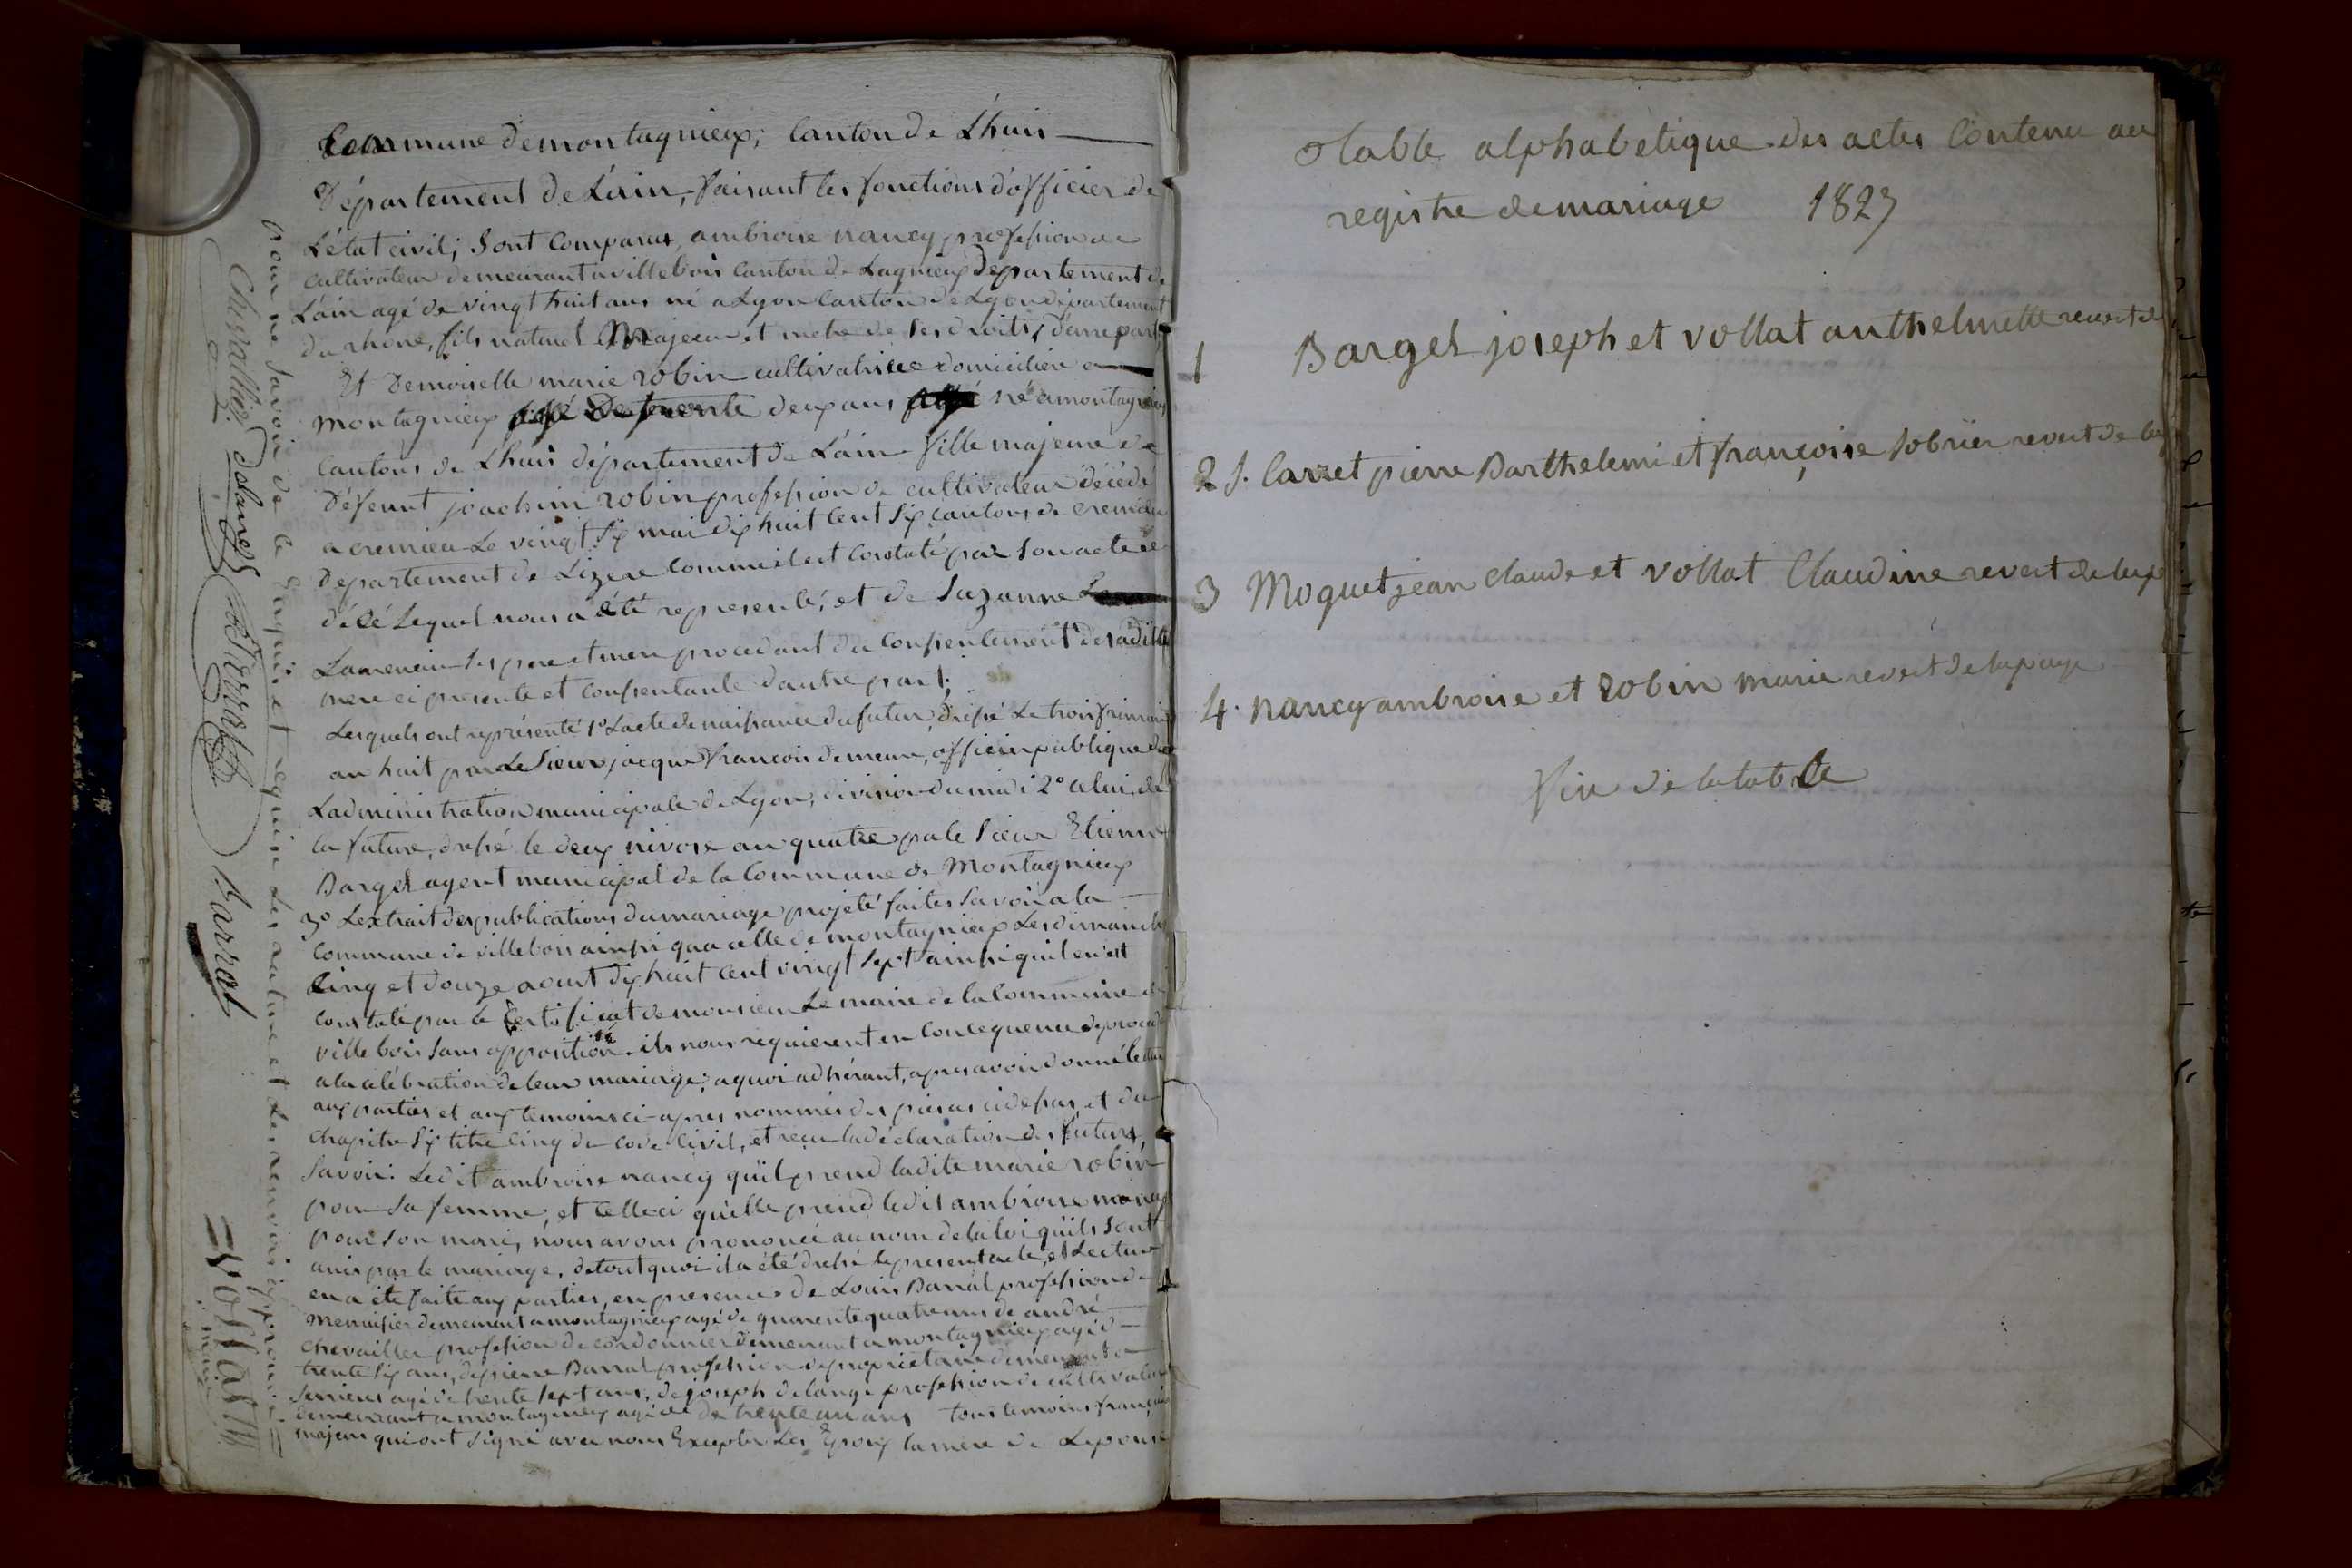 Commune de montagnieux; Canton de L'huis
Département de L'ain, faisant les fonctions d'officier de
L'état civil; Sont Comparus, ambroise nancy profession de
cultivateur demeurant a villebois Canton de Lagnieux Departement de
L'ain agé de vingt huit ans né a Lyon Canton de Lyon département
du rhône, fils naturel Majeur et metre de ses droits, d'une part,
Et Demoiselle marie robin cultivatrice domiciliée a
montagnieux de trente deux ans né a montagnieux
Cantons de Lhuis département de L'ain fille majeure de
Défeunt joachim robin profession de cultivateur décédé
a cremieu Le vingt six mai dix huit cent six cantons de cremieu
departement de Lizere comme il est Constaté par son acte de
décé Lequel nous a été representé, et de Suzanne
ses pere et mere procedant du consentement de sadite
mere ci presente et consentante d'autre part;
Lesquels ont représenté 1º L'acte de naissance du futur, dressé Le trois frimaire
an huit par Le Sieur jacque françois demeure, officier publique de
L'administration municipale de Lyon, division du midi 2º celui de
la future, dressé le deux nivose an quatre pa le Sieur Etienne
Barget agent municipal de la Commune de Montagnieux
3º L'extrait des publications du mariage projeté faites Savoir a la
Commune de villebois ainsi qu'a celle de montagnieux Les dimanches
Cinq et douze aout dix huit cent vingt sept ainsi qu'il en est
constaté par le certificat de monsieur Le maire de la Commune de
ville bois sans opposition. ils nous requierent en consequence de procede
a la célébration de leur mariage; a quoi adhérant, apres avoir donné lecture
aux parties et aux temoins ci-apres nommés des pieces ci dessus, et du
chapitre six titre Cinq du Code Civil, et reçu la déclaration des futurs,
Savoir: Ledit ambroise nancy qu'il prend ladite marie robin
pour sa femme, et celle ci qu'elle prend ledit ambroise nancy
pour son mari, nous avons prononcé au nom de la loi qu'ils sont
unis par le mariage. de tout quoi il a été dressé le present acte, et Lecture
en a été faite aux parties, en presence de Louis Barral profession de
menuisier demeurant a montagnieux agé de quarente quatre ans de andré
chevallier profession de cordonnier demeurant a montagnieux agé de
trente six ans, de pierre Barral profession de propriétaire demeurant a
agé de trente sept ans, de joseph delange profession de cultivateur
demeurant a montagnieux agé de trente un ans tous temoins français
majeurs qui ont signé avec nous Excepter Les Epoux la mere de Lepouse
pour ne savoir de ce Enquis et requis Les ratures et Les renvois approuvés
Chevallier delange Barral
Barral
Vollat
maire
Table alphabetique des actes Contenu au
registre de mariage 1827
1 Barget joseph et vollat anthelmette revert de
2 f. Carret pierre Barthelemi et françoise Sobrier revert de la
3 Moguet jean claude et vollat Claudine revert de la p
4. nancy ambroise et robin marie revert de la page
Fin de la table